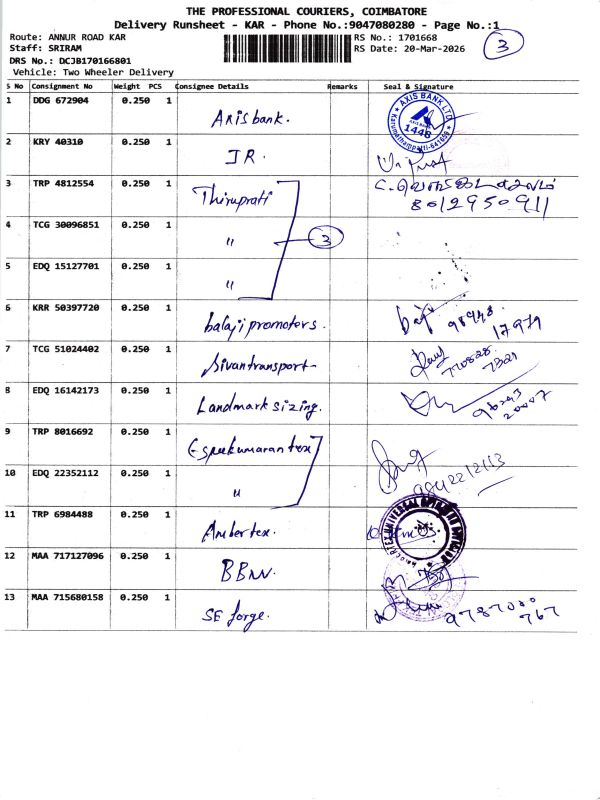 THE PROFESSIONAL COURIERS, COIMBATORE
Delivery Runsheet - KAR - Phone No.:9047080280 - Page No.:1
Route: ANNUR ROAD KAR
RS No.: 1701668
3
Staff: SRIRAM
RS Date: 20-Mar-2026
DRS No.: DCJB170166801
Vehicle: Two Wheeler Delivery
S No Consignment No Weight PCS Consignee Details Remarks Seal & Signature
1 DDG 672904 0.250 1 Axis bank. AXIS BANK LTD 1448
2 KRY 40310 0.250 1 JR.
3 TRP 4812554 0.250 1 Thiruprati 8012950911
4 TCG 30096851 0.250 1 " 3
5 EDQ 15127701 0.250 1 "
6 KRR 50397720 0.250 1 balaji promoters. 98948 17979
7 TCG 51024402 0.250 1 Sivantransport
8 EDQ 16142173 0.250 1 Landmark sizing.
9 TRP 8016692 0.250 1
10 EDQ 22352112 0.250 1 "
11 TRP 6984488 0.250 1 Ambertex.
12 MAA 717127096 0.250 1
13 MAA 715680158 0.250 1 SE forge. 767